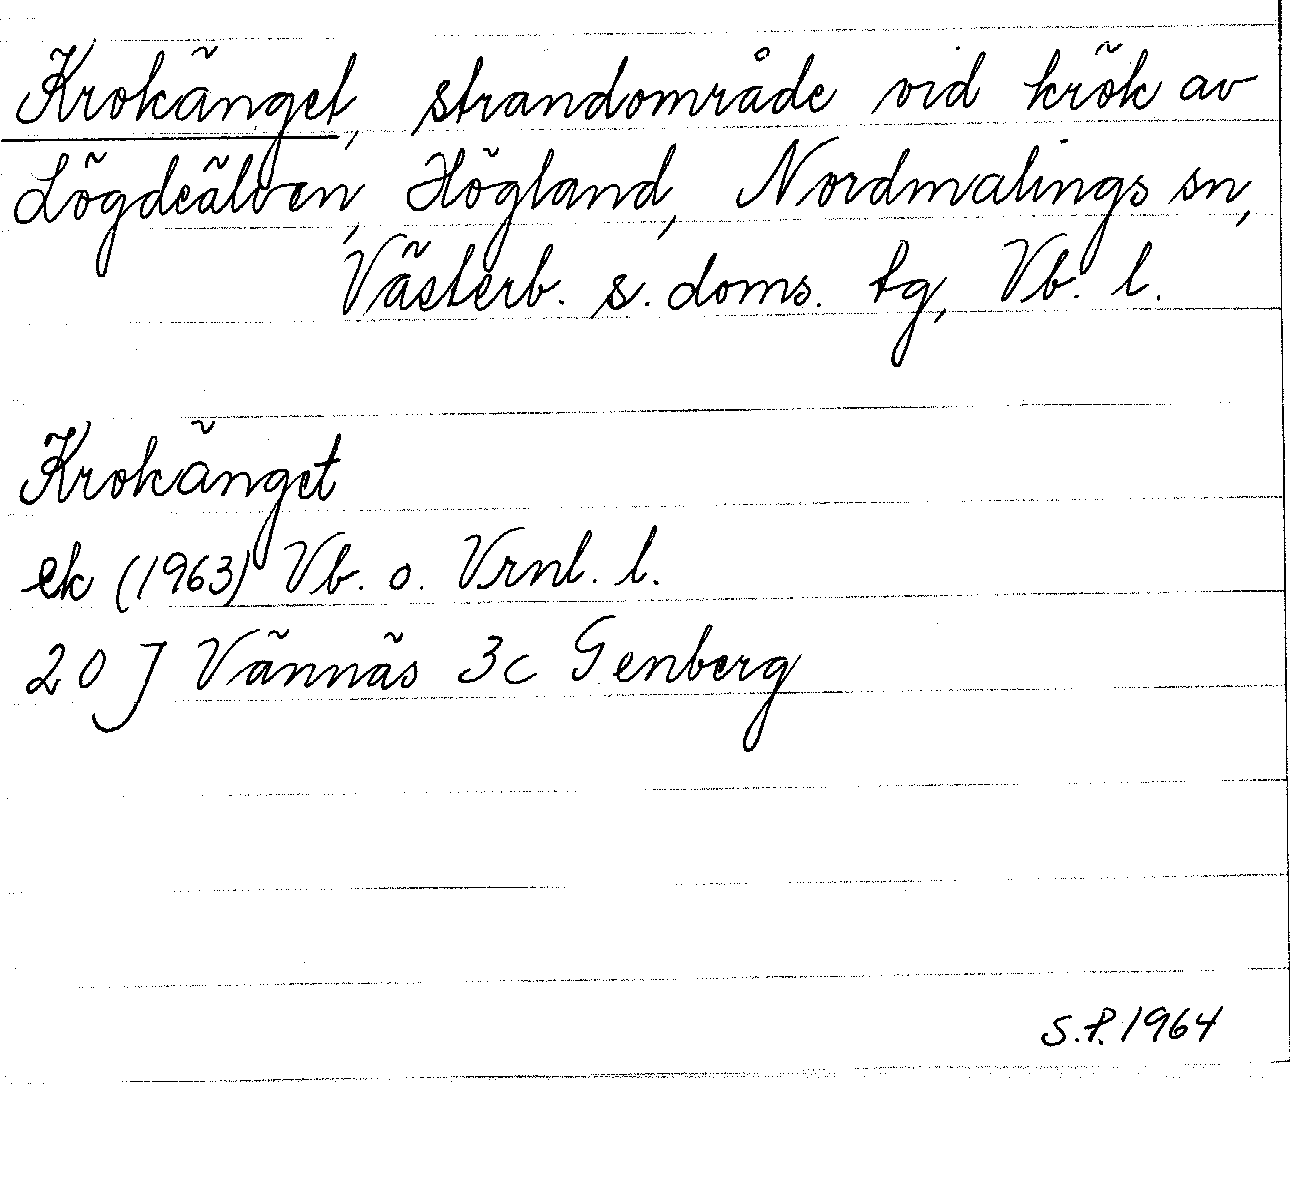 Krokänget, strandområde vid krök av
Lögdeälven, Högland, Nordmalings sn,
Västerb. s. doms. tg, Vb. l.
Krokänget
ek (1963) Vb. o. Vrnl. l.
20 J Vännäs 3c Genberg
S.P. 1964